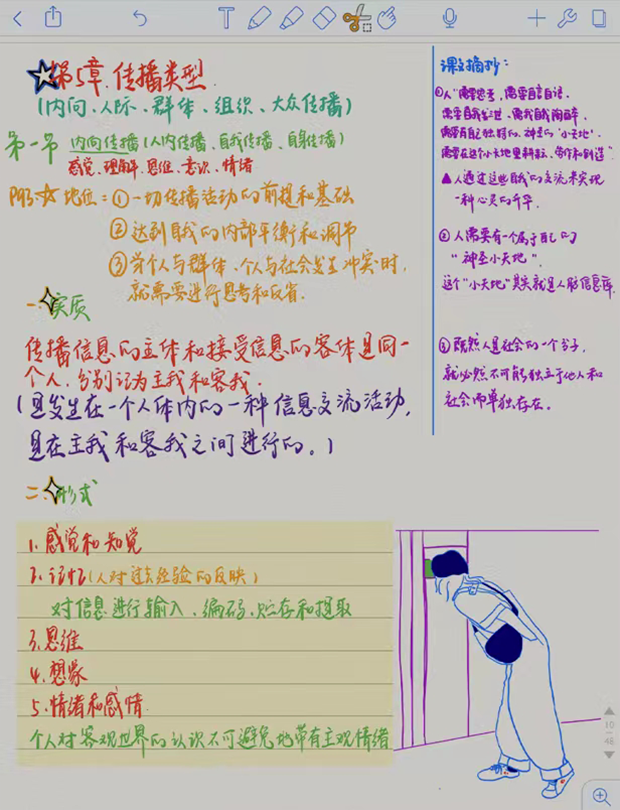 第5章.传播类型.
(内向、人际、群体、组织、大众传播)
第一节 内向传播(人内传播、自我传播、自身传播)
感觉、理解、思维、意识、情绪
P93.☆地位=①一切传播活动的前提和基础
②达到自我的内部平衡和调节
③当个人与群体、个人与社会发生冲突时,
就需要进行思考和反省.
一.实质
传播信息的主体和接受信息的客体是同一
个人.分别记为主我和客我.
(是发生在一个人体内的一种信息交流活动,
是在主我和客我之间进行的。)
二.形式
1.感觉和知觉
2.记忆(人对过去经验的反映)
对信息进行输入、编码、贮存和提取
3.思维
4.想象
5.情绪和感情.
个人对客观世界的认识不可避免地带有主观情绪
课文摘抄:
①人"需要思考,需要自言自语,
需要自我发泄、需要自我陶醉,
需要有自己独特的、神圣的"小天地",
需要在这个小天地里耕耘、劳作和创造"
▲人通过这些自我的交流来实现
一种心灵的升华.
②人需要有一个属于自己的
"神圣小天地"。
这个"小天地"其实就是人脑信息库
③既然人是社会的一个分子,
就必然不可能独立于他人和
社会而单独存在。
10
46